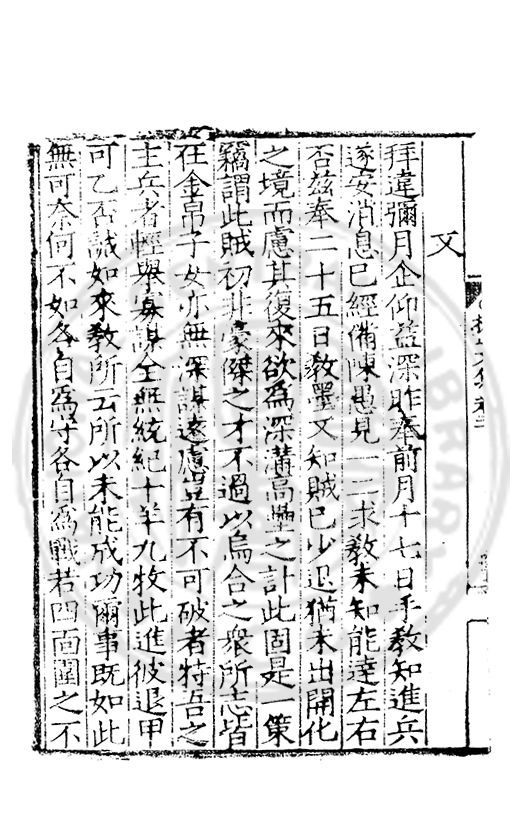 又
拜違彌月企仰益深昨奉前月十七日手教知進兵
遂安消息已經備陳愚見一二求教未知能達左右
否茲奉二十五日教墨又知賊已少退猶未出開化
之境而慮其復來欲為深溝高壘之計此固是一策
竊謂此賊初非豪傑之才不過以烏合之衆所志皆
在金帛子女亦無深謀遠慮豈有不可破者特吾之
主兵者輕舉寡謀全無統紀十羊九牧此進彼退甲
可乙否誠如來教所云所以未能成功爾事既如此
無可奈何不如各自為守各自為戰若四面圍之不